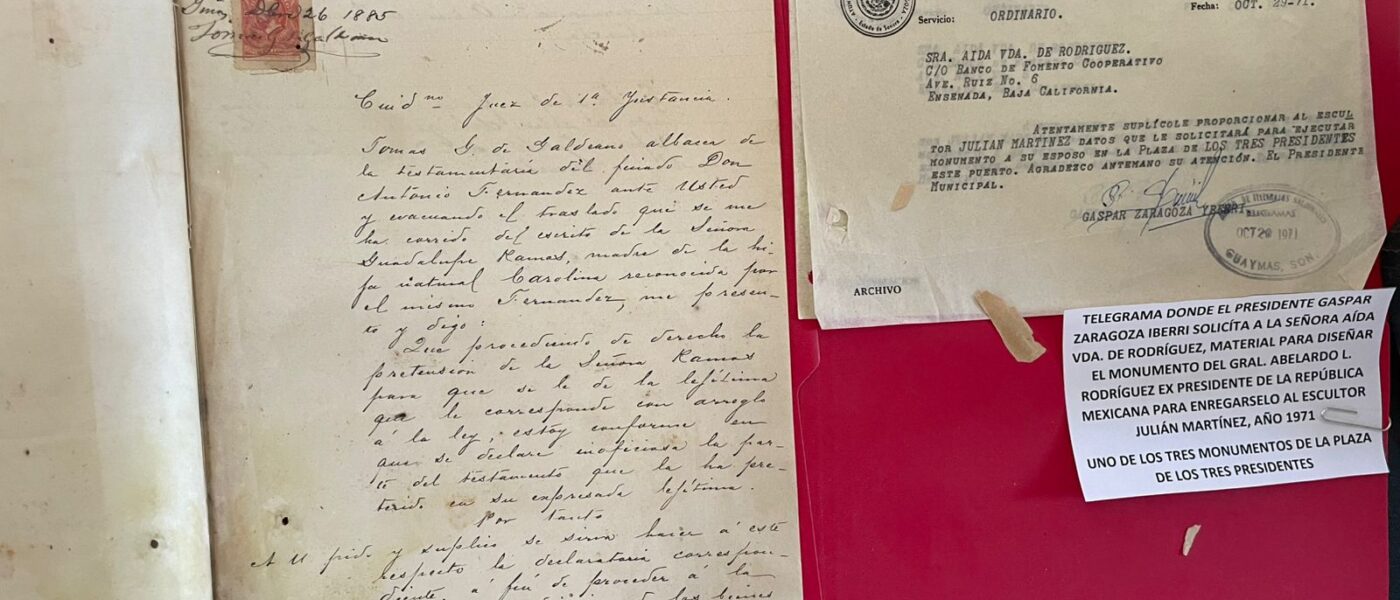 Dbre 26 1885
Ciudno Juez de 1ª Ynstancia.
Tomas G. de Galdeano albacea de
la testamentaría del finado Don
Antonio Fernandez ante Usted
y evacuando el traslado que se me
ha corrido del escrito de la Señora
Guadalupe Ramos, madre de la hi-
ja natural Carolina reconocida por
el mismo Fernandez, me presen-
to y digo:
Que procediendo de derecho la
pretension de la Señora Ramos
para que se le de la lefítima
que le corresponde con arreglo
á la ley, estoy conforme en
que se declare inoficiosa la par-
te del testamento que la ha pre-
terido en su expresada lefítima.
Por tanto
A U pido y suplico se sirva hacer á este
respecto la declaratoria correspon-
diente, á fin de proceder á la
de los bienes
Estado de Sonora
Servicio: ORDINARIO.
Fecha: OCT. 29-71.
SRA. AIDA VDA. DE RODRIGUEZ.
C/O BANCO DE FOMENTO COOPERATIVO
AVE. RUIZ NO. 6
ENSENADA, BAJA CALIFORNIA.
ATENTAMENTE SUPLÍCOLE PROPORCIONAR AL ESCUL
TOR JULIAN MARTINEZ DATOS QUE LE SOLICITARÁ PARA EJECUTAR
MONUMENTO A SU ESPOSO EN LA PLAZA DE LOS TRES PRESIDENTES
ESTE PUERTO. AGRADEZCO ANTEMANO SU ATENCIÓN. EL PRESIDENTE
MUNICIPAL.
GASPAR ZARAGOZA YBERRI
TELEGRAMAS
OCT 29 1971
GUAYMAS, SON.
ARCHIVO
TELEGRAMA DONDE EL PRESIDENTE GASPAR
ZARAGOZA IBERRI SOLICÍTA A LA SEÑORA AÍDA
VDA. DE RODRÍGUEZ, MATERIAL PARA DISEÑAR
EL MONUMENTO DEL GRAL. ABELARDO L.
RODRÍGUEZ EX PRESIDENTE DE LA REPÚBLICA
MEXICANA PARA ENREGARSELO AL ESCULTOR
JULIÁN MARTÍNEZ, AÑO 1971
UNO DE LOS TRES MONUMENTOS DE LA PLAZA
DE LOS TRES PRESIDENTES